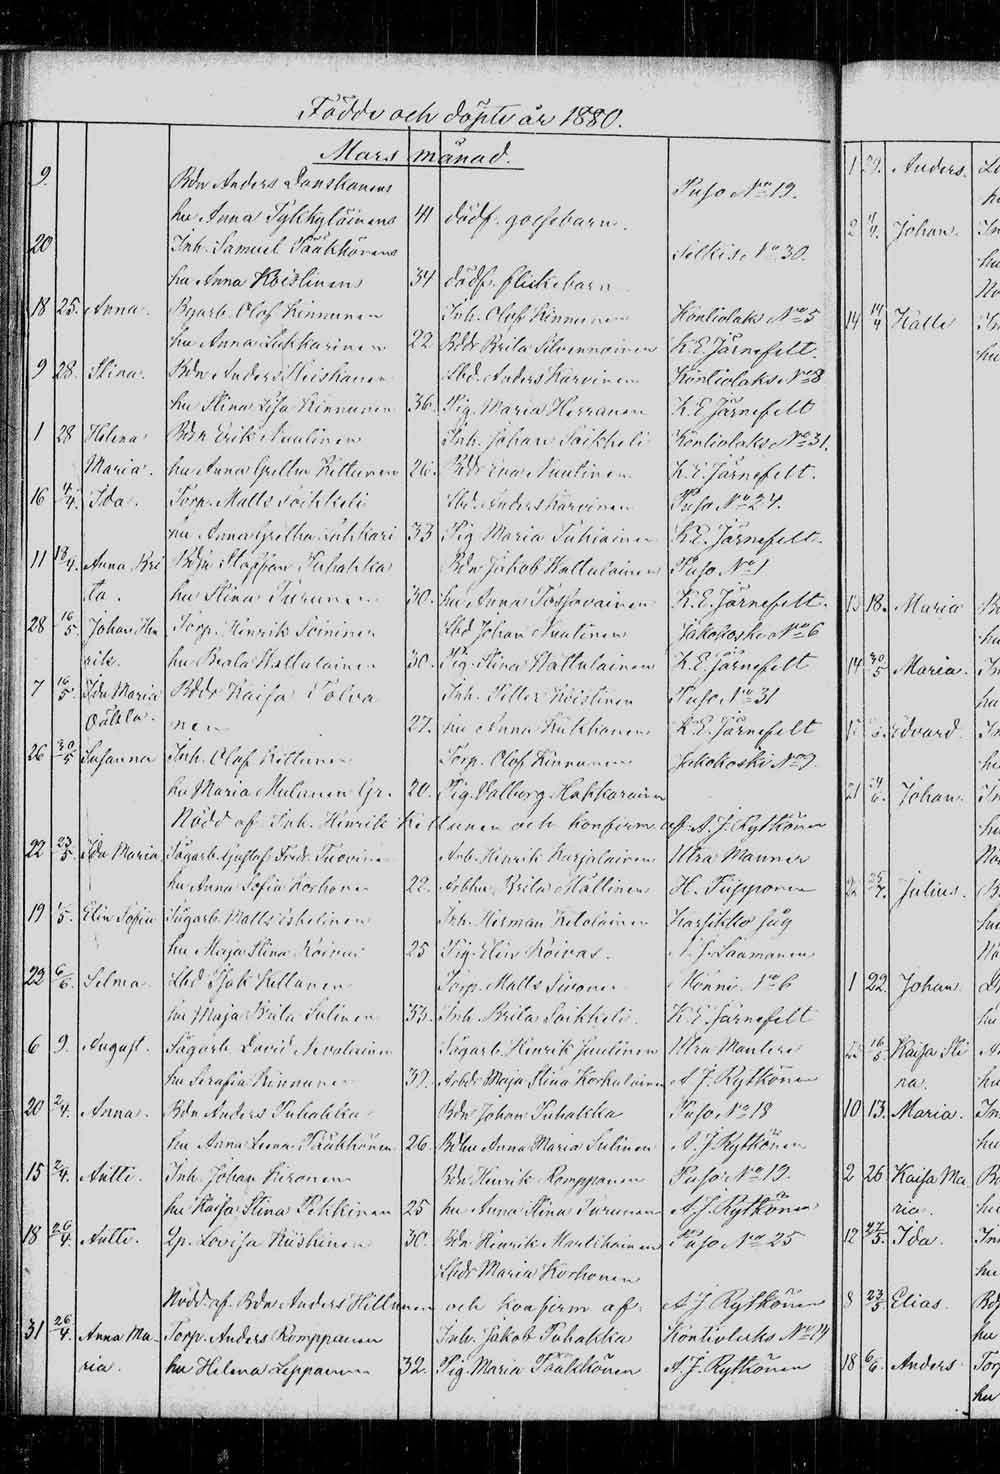 Födde och döpte år 1880.
Mars månad.
9. Bdn Anders Danskanens Puso No 19.
hu Anna Tykkyläinens 41 dödf. gossebarn.
20 Inh. Samuel Pääkkönens Selkis No 30.
hu Anna Koistinens 34 dödf. flickebarn
18 25. Anna. Bgarb. Olof Kinnunen Inh. Olof Kinnunen Kontiolaks No 5
hu Anna Sakkarinen 22 Bddr Brita Silvennoinen K. E. Järnefelt.
9 28. Stina. Bdn Anders Heiskanen Lbd. Anders Karvinen Kontiolaks No 8
hu Stina Lisa Kinnunen 36. Pig. Maria Herranen K. E. Järnefelt
1 28 Helena Bdn Erik Nuutinen Inh. Johan Saikkeli Kontiolaks No 31.
Maria. hu Anna Gretha Kettunen 26. Bddr Eva Nuutinen K. E. Järnefelt.
16 4/4. Ida. Torp. Matts Saikkeli Lbd. Anders Karvinen Puso No 24.
hu Anna Gretha 33 Pig Maria Tuhiainen K. E. Järnefelt.
11 18/4. Anna Kri Bdn Staffan Puhakka Bdn Jakob Wattulainen Puso No 1
ta. hu Stina Turunen 30. hu Anna K. E. Järnefelt.
28 16/5. Johan Hen Torp. Henrik Soininen Lbd Johan Nuutinen Jakokoski No 6
rik. hu Beata Wattulainen 30. Pig. Stina Wattulainen K. E. Järnefelt
7 16/5. Ida Maria Bddr Kaisa Tolva Inh. Petter Koistinen Puso No 31
nen 27. hu Anna K. E. Järnefelt
26 30/5 Susanna Inh. Olof Kettunen Torp. Olof Kinnunen Jakokoski No 9.
hu Maria Mulanen Gr. 20. Pig. Valborg Hakkarainen
Nödd. af Inh. Henrik Kettunen och konfirm. af A. J. Rytkönen
22 23/5. Ida Maria Sågarb. Gustaf Fredr. Tuovinen Arb. Henrik Karjalainen Utra Manner
hu Anna Sofia Korhonen 22. Arbhu Brita Mattinen H. Piipponen
19 /5. Elin Sofia Sågarb. Matts Inh. Herman Ketolainen Karsikko såg
hu Maja Stina Koivas 25 Pig. Elin Koivas. Laamanen
22 6/6. Selma. Lbd Isak Kettunen Torp. Matts Sivonen Mönni No 6
hu Maja Brita Sulinen 33. Inh. Brita Saikkeli. K. E. Järnefelt
6 9. August. Sågarb. David Nevalainen Sågarb. Henrik Juutinen Utra
hu Serafia Kinnunen 39. Arbdr Maja Stina Korhalainen A. J. Rytkönen
20 2/4. Anna. Bdn Anders Puhakka Bdn Johan Puhakka Puso No 18
hu Anna Leena Pääkkönen 26. Bdhu Anna Maria Sulinen A. J. Rytkönen
15 2/4. Antti. Inh. Johan Kironen Bdn Henrik Romppanen Puso No 19.
hu Kaisa Stina Pekkinen 25 hu Anna Stina Turunen A. J. Rytkönen
18 26/4. Antti. Qp. Lovisa Kiiskinen 30. Bdn Henrik Martikainen Puso No 25
Lbdr Maria Korhonen
Nödd. af. Bdn Anders Hiltunen och konfirm af. A. J. Rytkönen
31 26/4. Anna Ma- Torp. Anders Romppanen Inh. Jakob Puhakka Kontiolaks No 14
ria. hu Helena Leppänen 32. Pig. Maria Pääkkönen A. J. Rytkönen
1 29. Anders.
2 11/4. Johan.
14 14/4 Kalle
18. Maria
14 30/5 Maria.
Edvard.
21 Johan.
25/7. Julius.
1 22. Johan
16/5. Kaisa Sti
na.
10 13. Maria.
2 26 Kaisa Ma
ria.
12 27/5. Ida.
8 23/5 Elias.
18 6/6. Anders